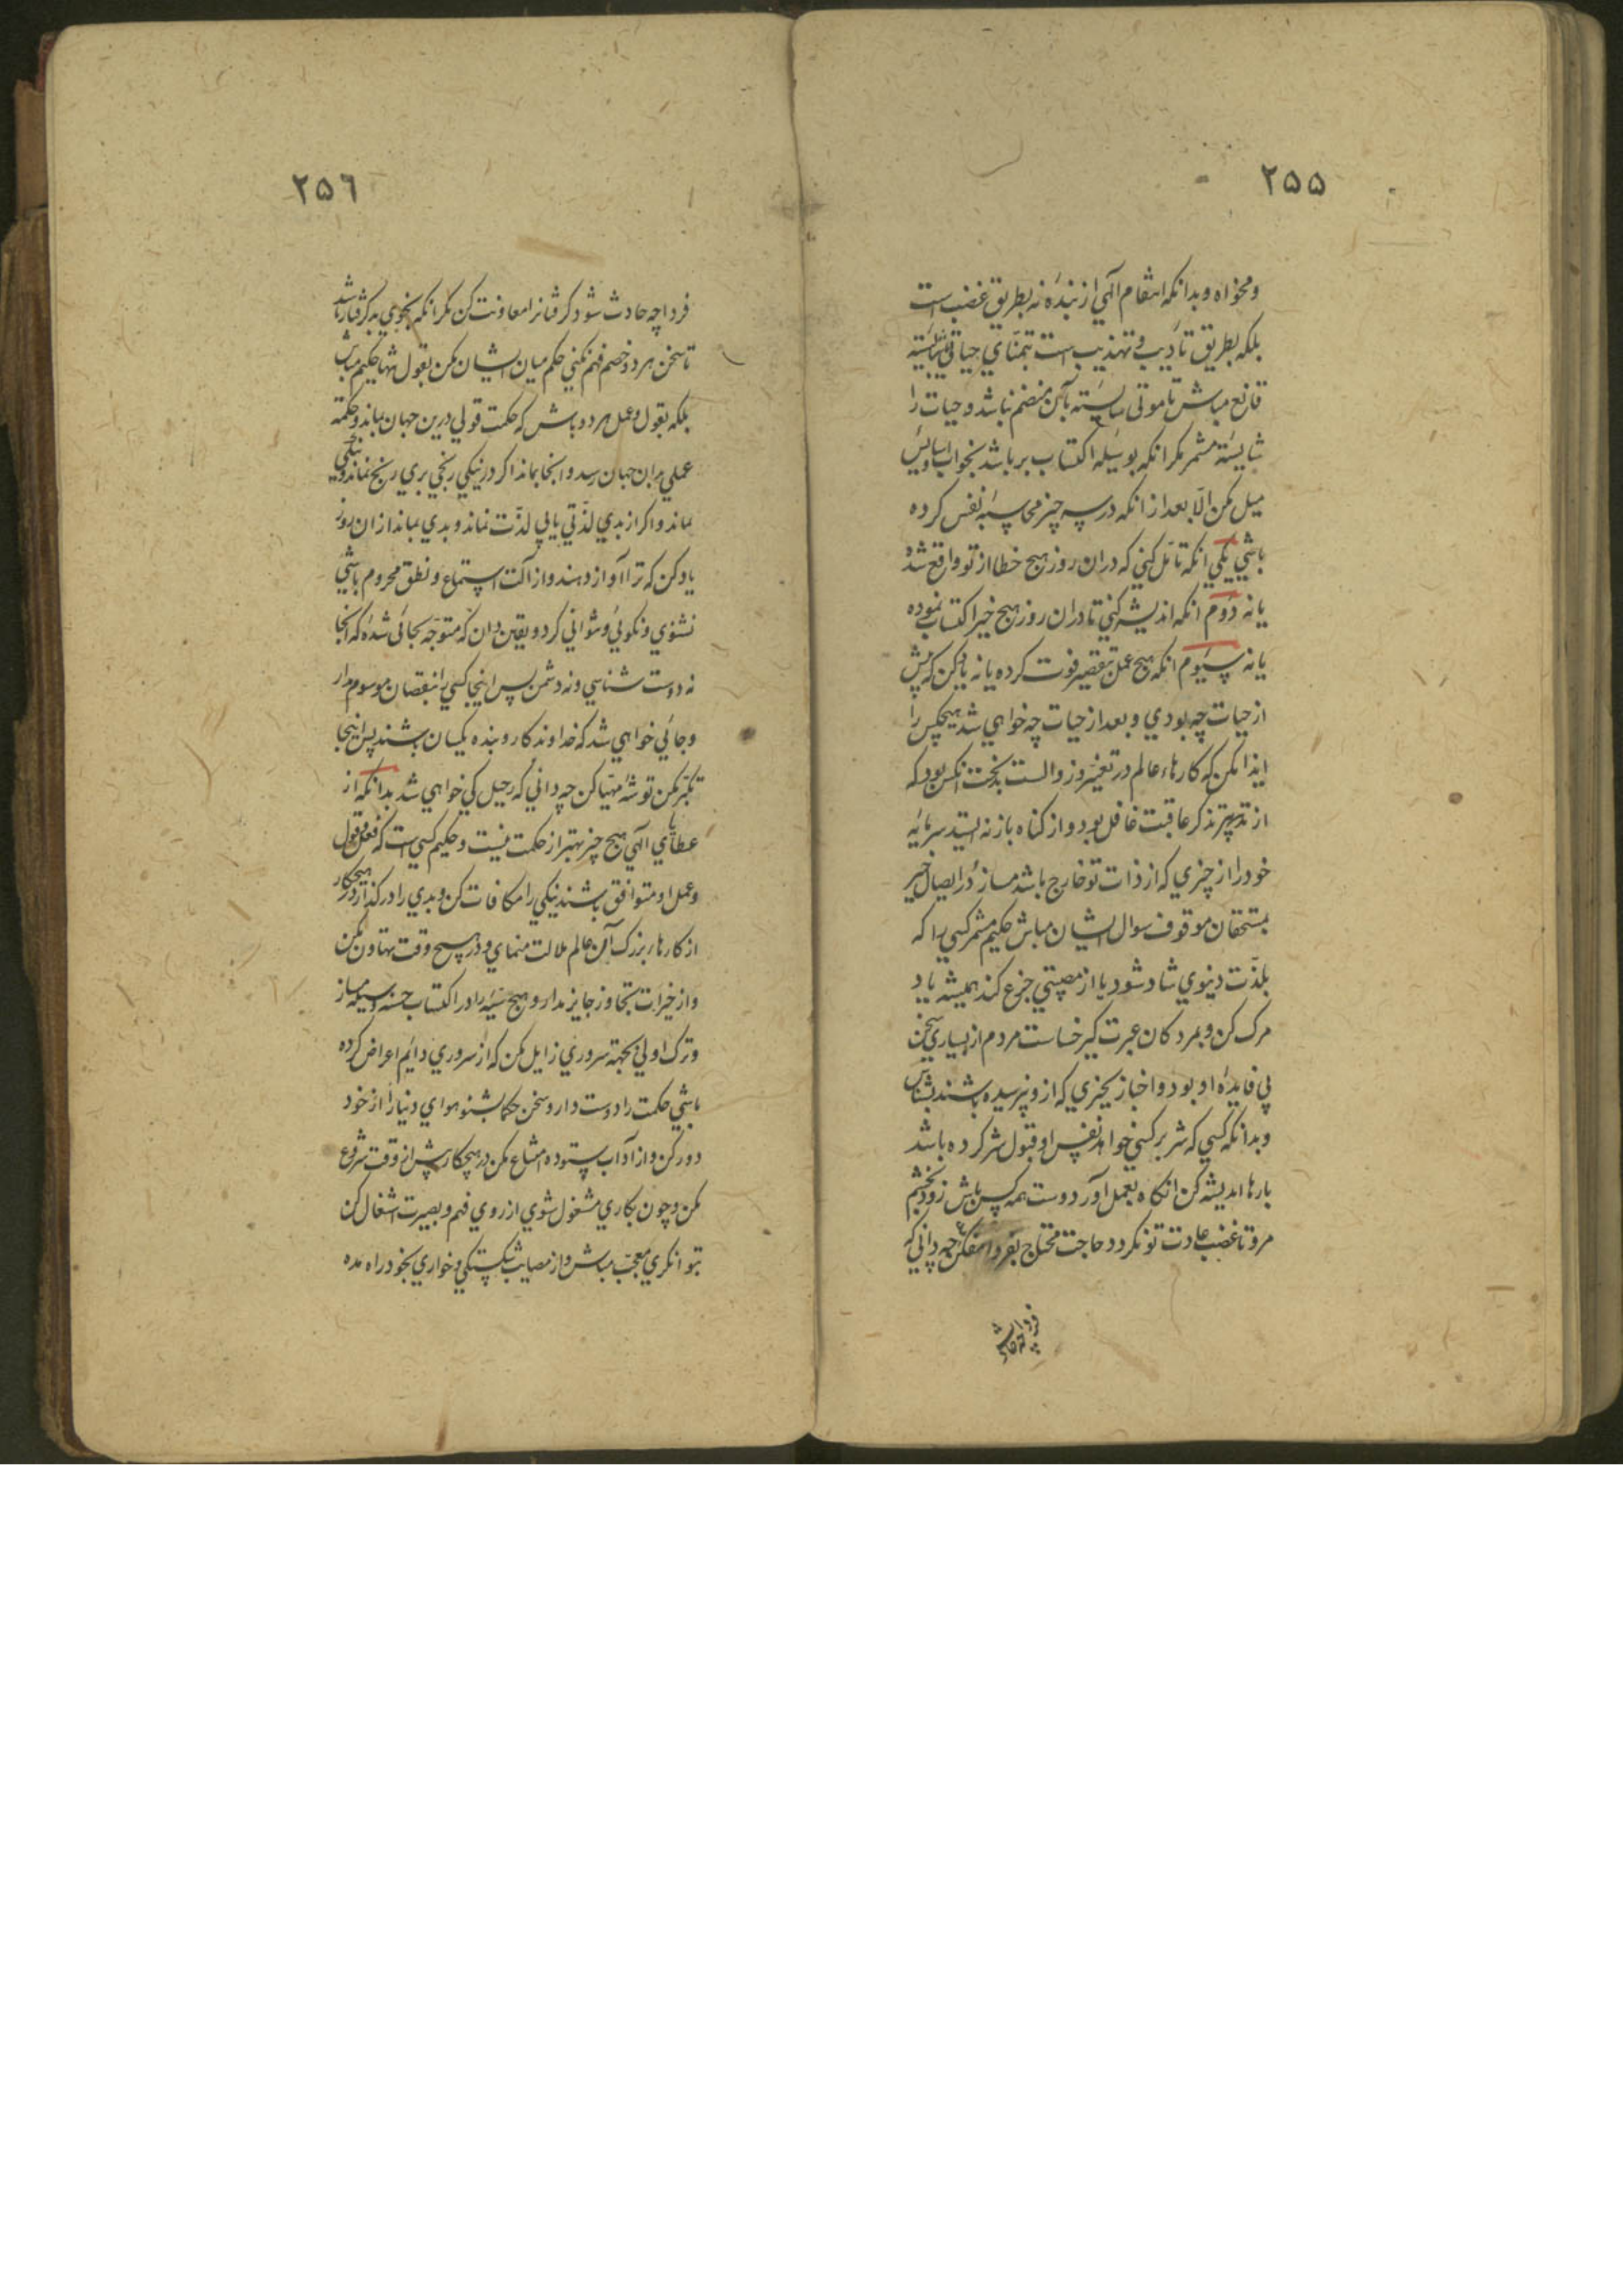 ۲۵۵
ومخواه وبدانکه انتقام الهي از بنده نه بطریق غضب است
بلکه بطریق تادیب و تهذیب است بتمناي حیاتي شایسته
قانع مباش تا موتی شایسته بآن منضم نباشد و حیات را
شایسته مشمر مکر انکه بوسیله اکتساب بر باشد بخواب واسایش
میل مکن الّا بعد از انکه در سه چیز محاسبه نفس کرده
باشي یکي انکه تامّل کني که دران روز هیچ خطا از تو واقع شده
یا نه دوم انکه اندیشه کني تا دران روز هیچ خیر اکتساب نموده
یا نه سیوم انکه هیچ عمل بتقصیر فوت کرده یا نه یاد کن که پیش
از حیات چه بودي و بعد از حیات چه خواهي شد هیچکس را
ایذا مکن که کارهاء عالم در تغیّر و زوالست بدبخت انکس بود که
از تذکر عاقبت غافل بود و از کناه باز نه ایستد سرمایه
خود را از چیزي که از ذات تو خارج باشد مساز در ایصال خیر
بمستحقان موقوف سوال ایشان مباش حکیم مشمر کسي را که
بلذّت دنیوي شاد شود یا از مصیبتي جزع کند همیشه یاد
مرک کن و بمردکان عبرت کیر خساست مردم از بسیاري سخن
بي فایدهٔ او بود و اخبار بچیزي که ازو نپرسیده باشند بشناس
وبدانکه کسي که شر بر کسي خواهد نفس او قبول شر کرده باشد
بارها اندیشه کن انکاه بعمل آور دوست همه کس باش زود بخشم
مرو تا غضب عادت تو نکردد حاجت محتاج بفردا میفکن چه داني که
فردا چه حادث
۲۵٦
فردا چه حادث شود کرفتانرا معاونت کن مکر انکه بخوي بد کرفتار باشد
تا سخن هر دو خصم فهم نکني حکم میان ایشان مکن بقول تنها حکیم مباش
بلکه بقول و عمل هر دو باش که حکمت قولي درین جهان بماند و حکمة
عملي بدان جهان رسد و انجا بماند اکر در نیکي رنجي بري رنج نماند و نیکي
بماند و اکر از بدي لذّتي یابي لذّت نماند و بدي بماند ازان روز
یاد کن که ترا آواز دهند و از آلت استماع و نطق محروم باشي
نشنوي و نکوئي و نتواني کرد و یقین دان که متوجّه بجائي شده که انجا
نه دوست شناسي و نه دشمن پس اینجا کسي را بنقصان موسوم مدار
وجائي خواهي شد که خداوند کار و بنده یکسان باشند پس اینجا
تکبّر مکن توشه مهیّا کن چه داني که رحیل کي خواهي شد بدانکه از
عطایاي الهي هیچ چیز بهتر از حکمت نیست و حکیم کسي است که فعل و قول
وعمل او متوافق باشند نیکي را مکافات کن و بدي را در کذار در هیچکار
از کارهاء بزرک این عالم ملالت منماي و در هیچ وقت تهاون مکن
واز خیرات تجاوز جایز مدار و هیچ سیئه را در اکتساب حسنه وسیله مساز
وترک اولي بجهة سروري زایل مکن که از سروري دائم اعراض کرده
باشي حکمت را دوست دار و سخن حکما بشنو هواي دنیا را از خود
دور کن و از آداب ستوده امتناع مکن در هیچکار پیش از وقت شروع
مکن و چون بکاري مشغول شوي از روي فهم و بصیرت اشتغال کن
بتوانکري معجب مباش و از مصایب شکستکي و خواري بخود راه مده